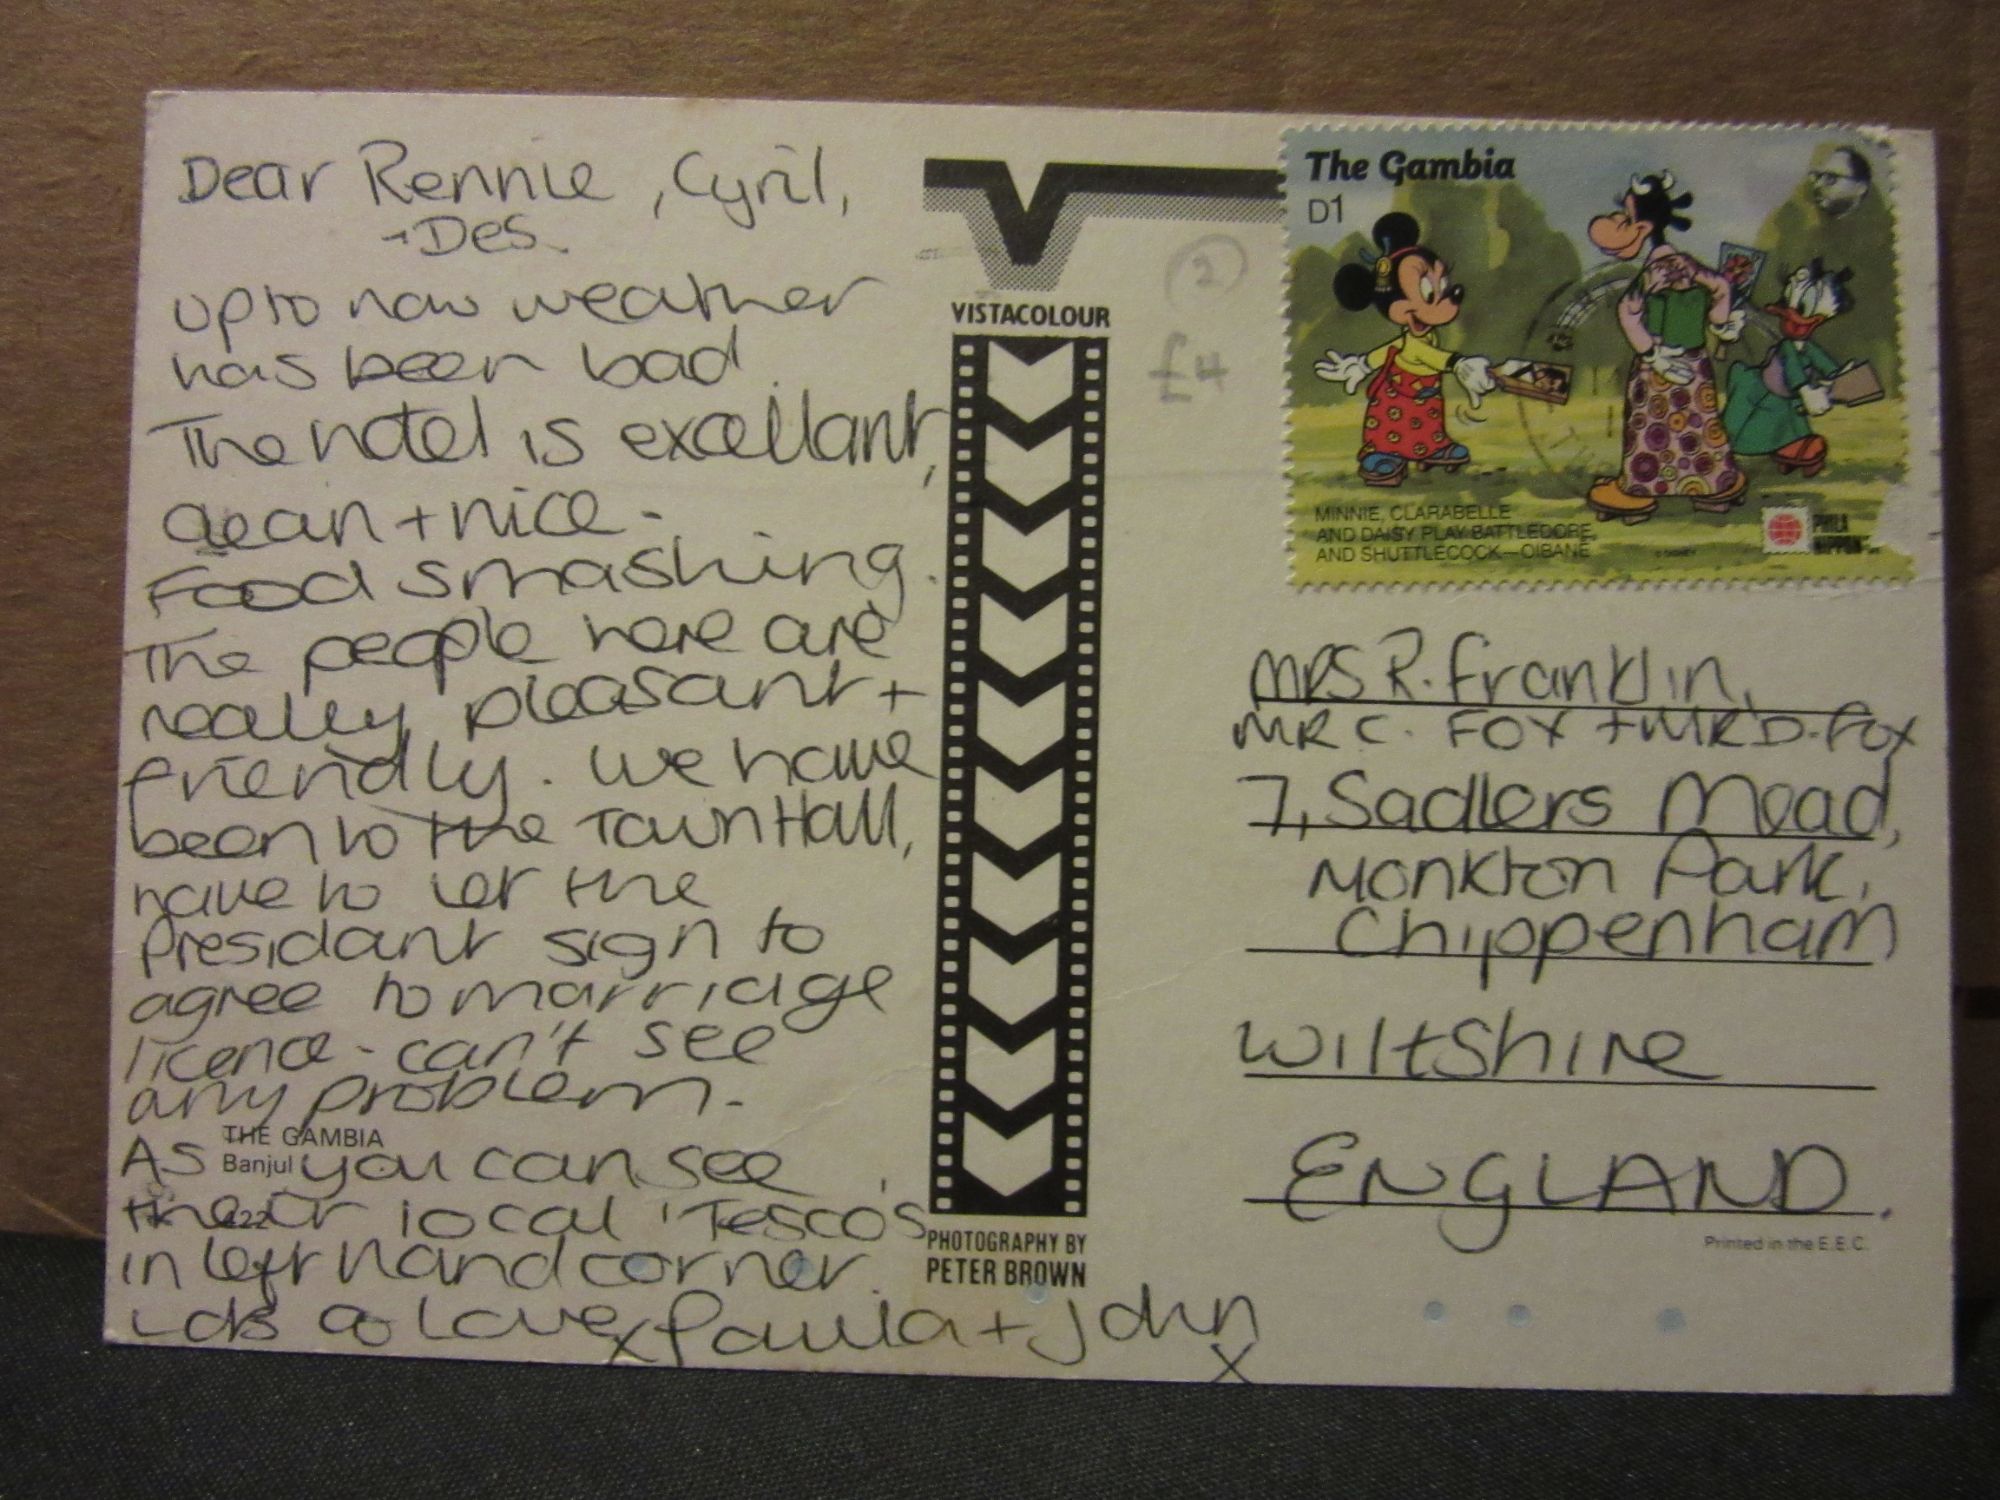 Dear Rennie, Cyril,
+ Des.
up to now weather
has been bad.
The hotel is excellant,
clean + nice.
Food smashing.
The people here are
really pleasant +
friendly. We have
been to the Town Hall,
have to let the
Presidant sign to
agree to marriage
licence - can't see
any problem.
THE GAMBIA
Banjul
As you can see
their local 'Tesco's
in left hand corner.
Lots a Love x Paula + John
x
VISTACOLOUR
PHOTOGRAPHY BY
PETER BROWN
2
£4
The Gambia
D1
MINNIE, CLARABELLE
AND DAISY PLAY BATTLEDORE
AND SHUTTLECOCK—OIBANE
© DISNEY
PHILA
NIPPON
MRS R. Franklin,
MR C. FOX + MR D. Fox
7, Sadlers Mead,
Monkton Park,
Chippenham
Wiltshire
ENGLAND.
Printed in the E.E.C.